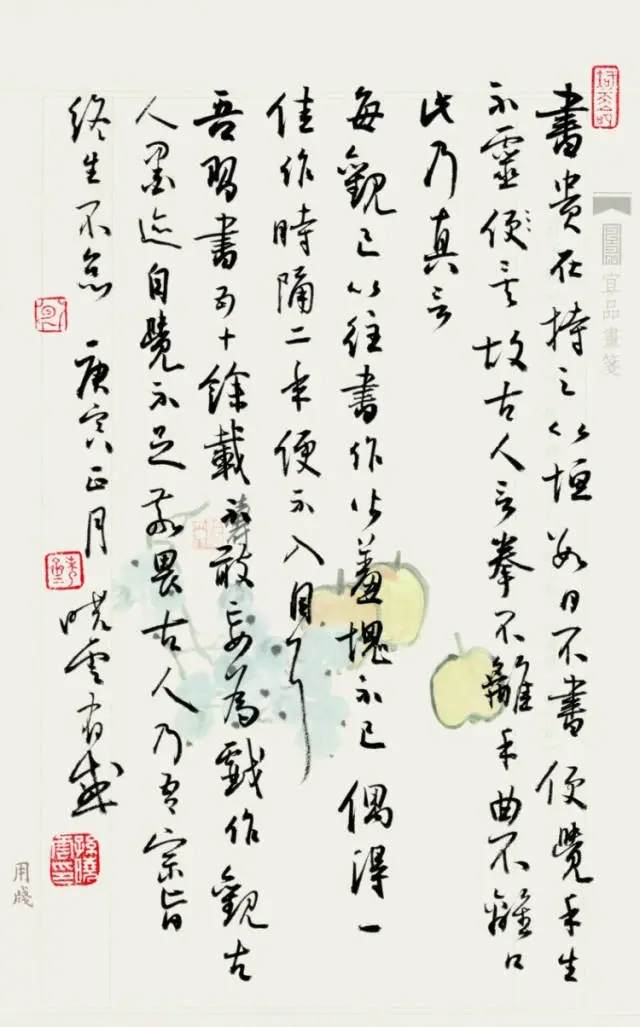 宜品畫箋
書貴在持之以恒数日不書便覺手生
不靈便矣故古人言拳不離手曲不離口
此乃真言
每觀已以往書作皆羞愧不已偶得一
佳作時隔二年便不入目了
吾習書五十餘載不敢妄為戲作觀古
人墨迹自覺不足敬畏古人乃吾宗旨
終生不怠 庚寅正月 曉雲有感
孫曉雲印
用牋